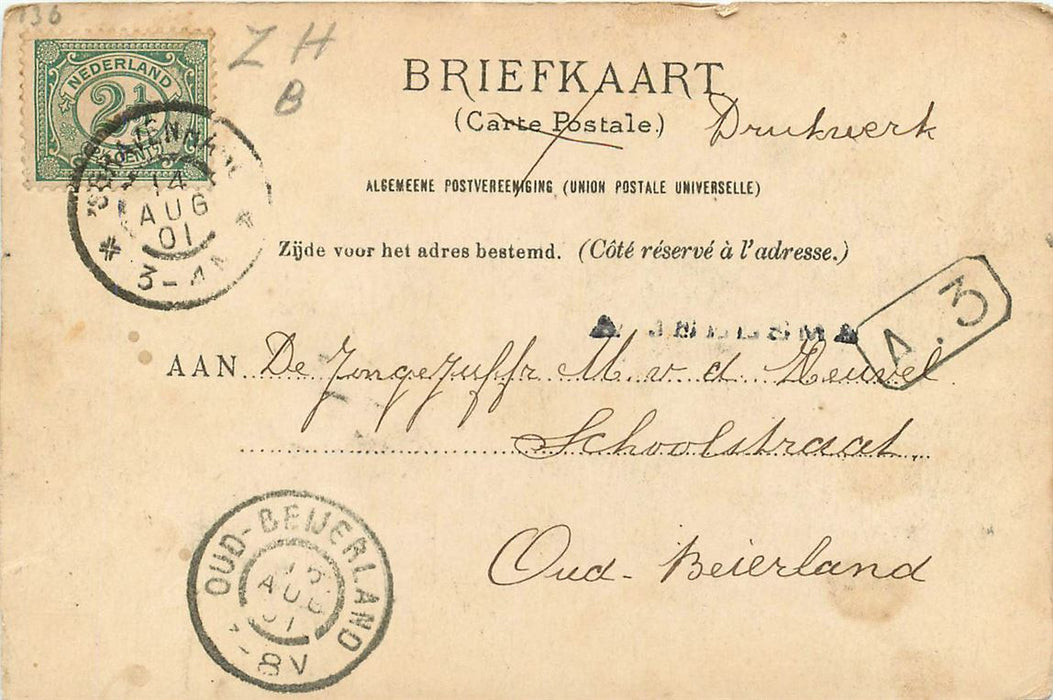 136
Z H
B
NEDERLAND
2½
CENT
'S-GRAVENHAGE
14
AUG
01
3-4N
BRIEFKAART
(Carte Postale.) Drukwerk
ALGEMEENE POSTVEREENIGING (UNION POSTALE UNIVERSELLE)
Zijde voor het adres bestemd. (Côté réservé à l'adresse.)
A.3
AAN De Jongejuffr M. v. d. Heuvel
Schoolstraat
Oud-Beierland
OUD-BEIJERLAND
AUG
01
-8V